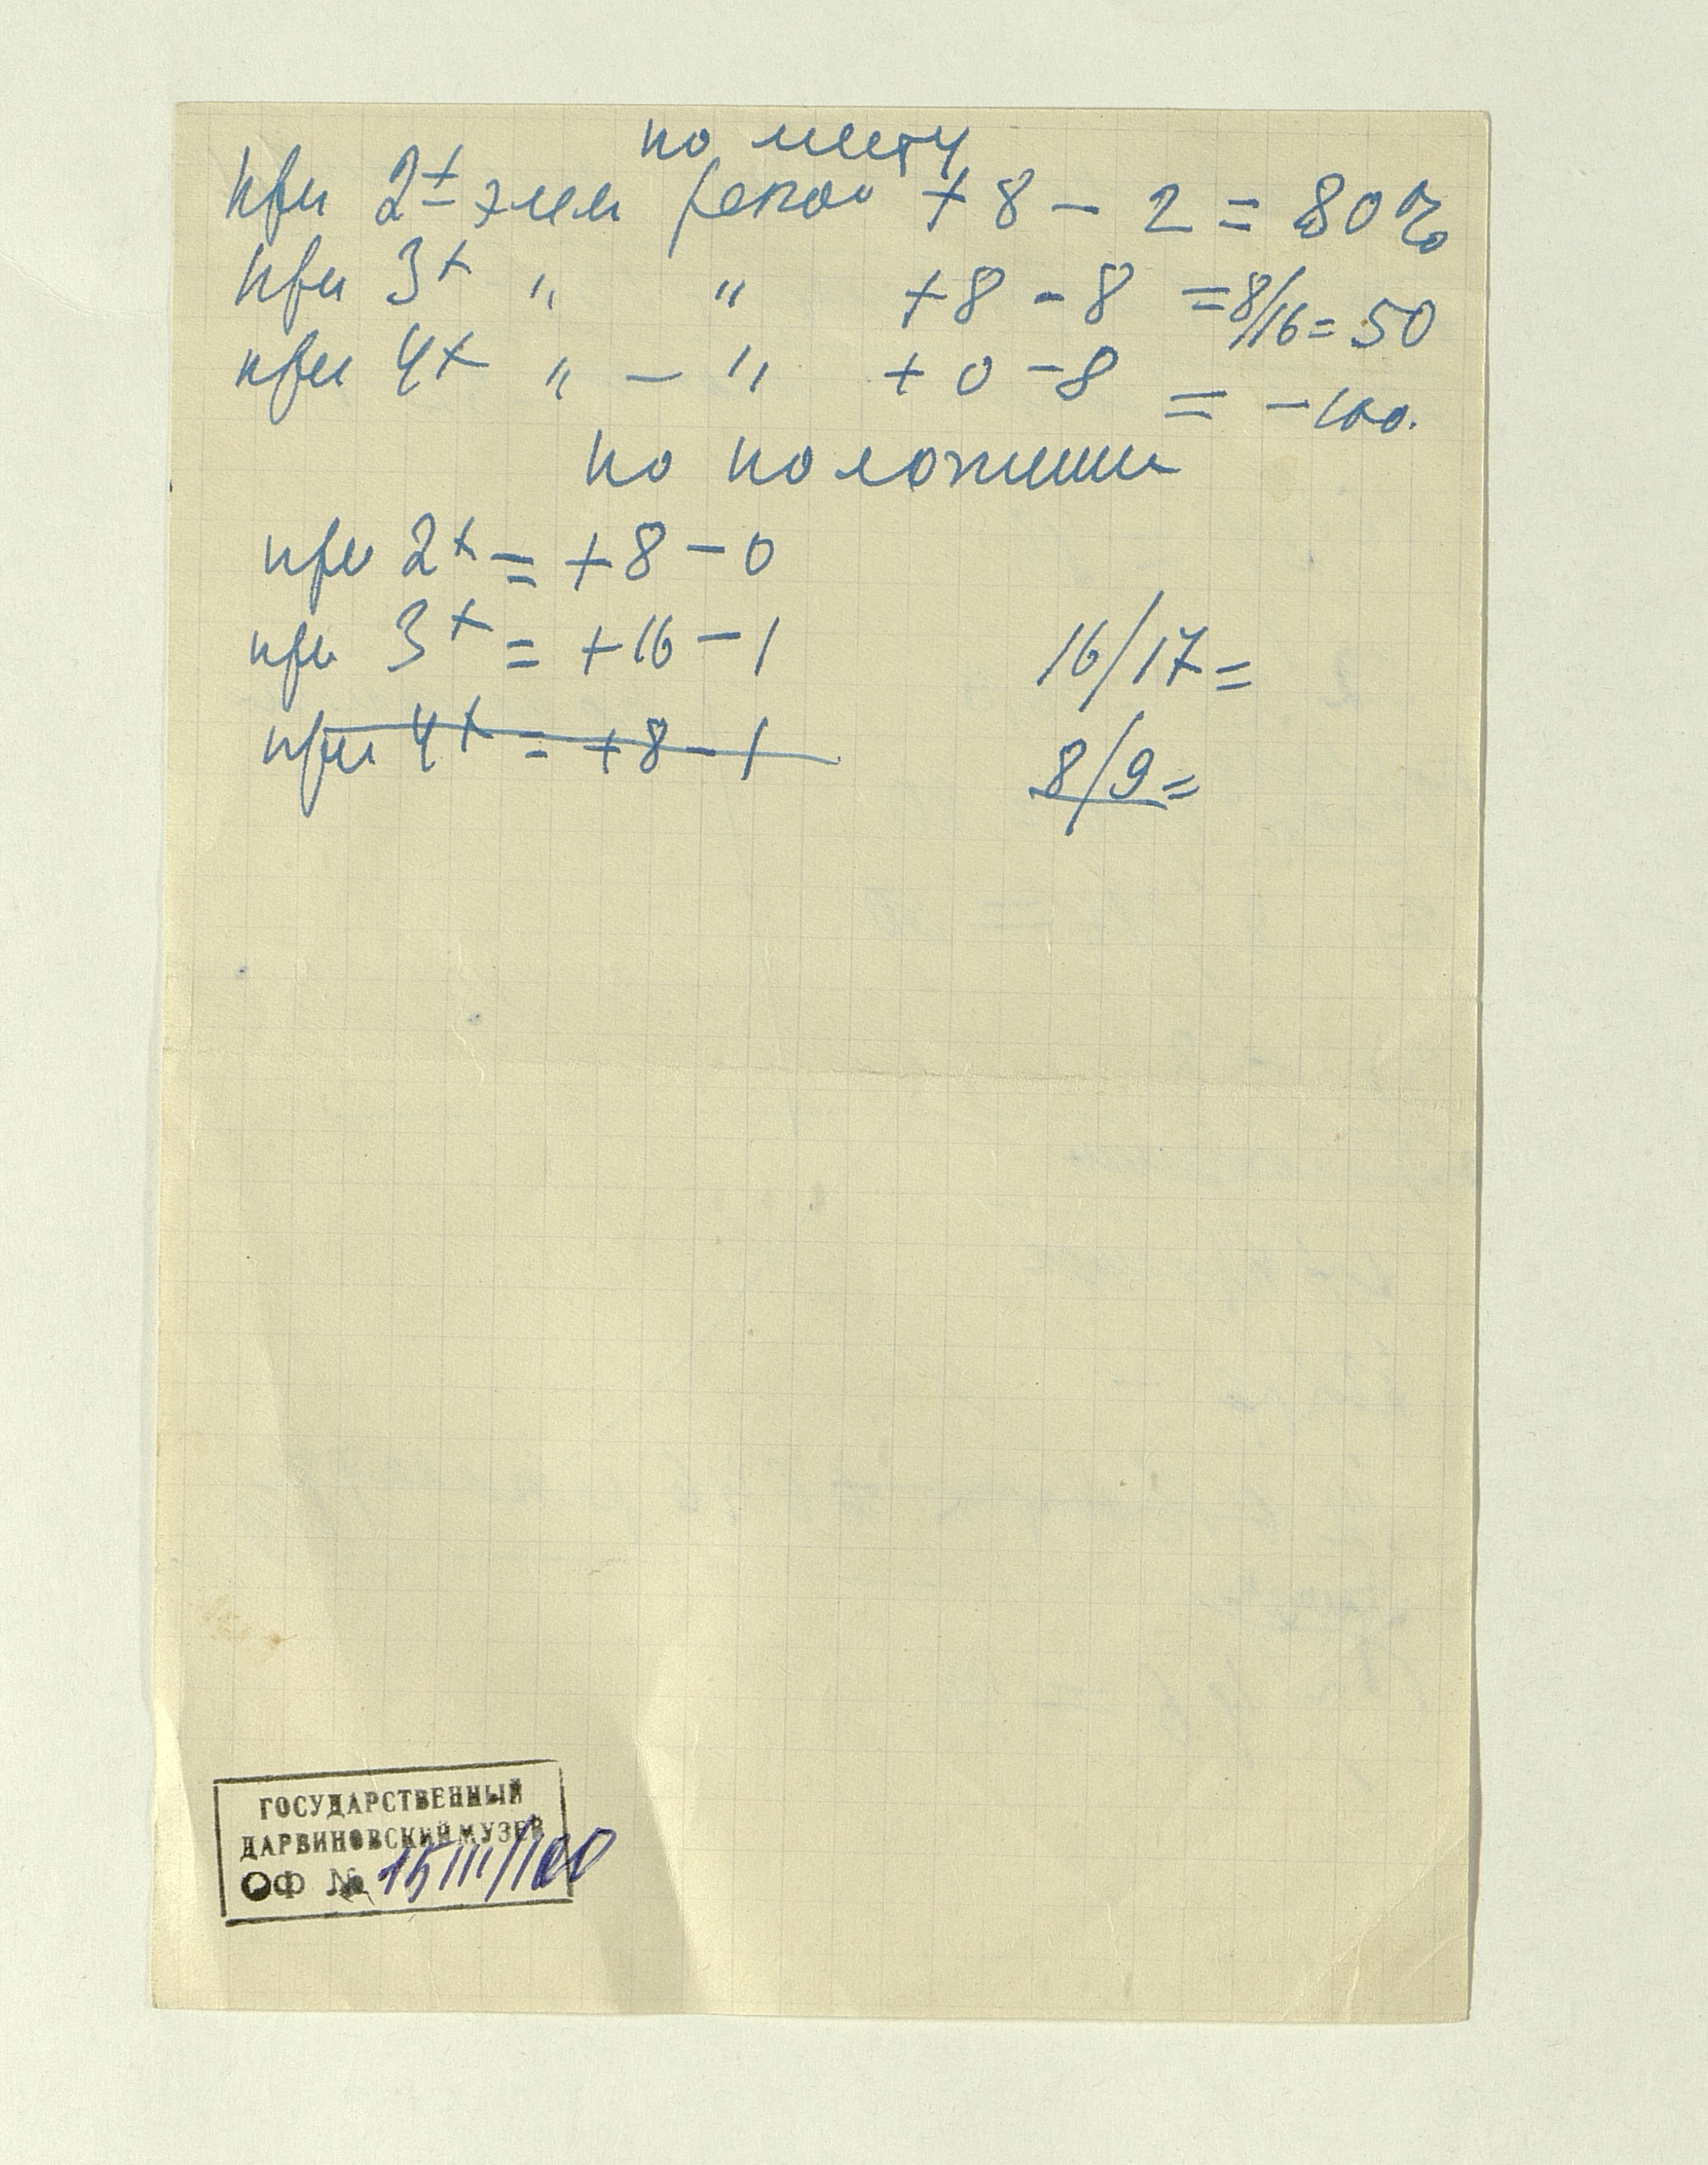 по месту
при 2х элем + 8 - 2 = 80%
при 3х " " + 8 - 8 = 8/16 = 50
при 4х " - " + 0 - 8 = - 100.
по положению
при 2х = + 8 - 0
при 3х = + 16 - 1 16/17 =
при 4х = + 8 - 1 8/9 =
ГОСУДАРСТВЕННЫЙ
ДАРВИНОВСКИЙ МУЗЕЙ
ОФ № 15111/100